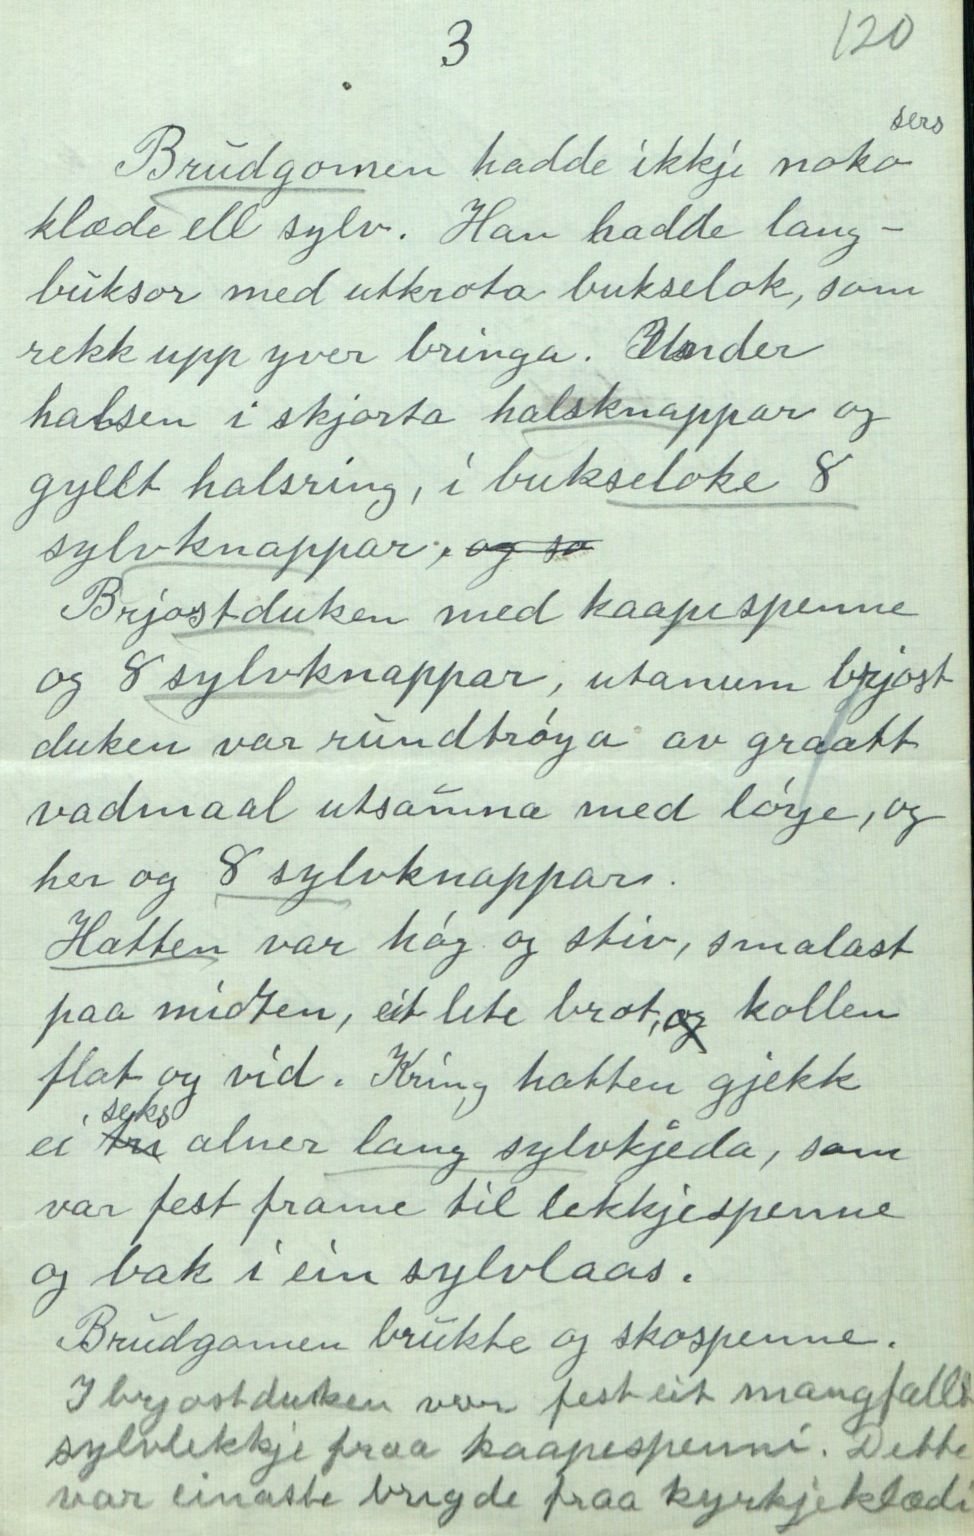 3
120
sers
Brudgomen hadde ikkje noko
klæde ell sylv. Han hadde lang-
buksor med utkrota bukselok, som
rekk upp yver bringa. Under
halsen i skjorta halsknappar og
gyllt halsring, i bukseloke 8
sylvknappar, og so
Brjostduken med kaapespenne
og 8 sylvknappar, utanum brjost
duken var rundtrøya av graatt
vadmaal utsamna med lørje, og
her og 8 sylvknappar.
Hatten var høg og stiv, smalast
paa midten, eit lete brot, og kollen
flat og vid. Kring hatten gjekk
seks
ei tri alner lang sylvkjeda, som
var fest frame til lekkjespenne
og bak i ein sylvlaas.
Brudgomen brukte og skospenne.
I brjostduken var fest eit mangfallt
sylvlekkje fraa kaapespenni. Dette
var einaste brigde fraa kyrkjeklædi